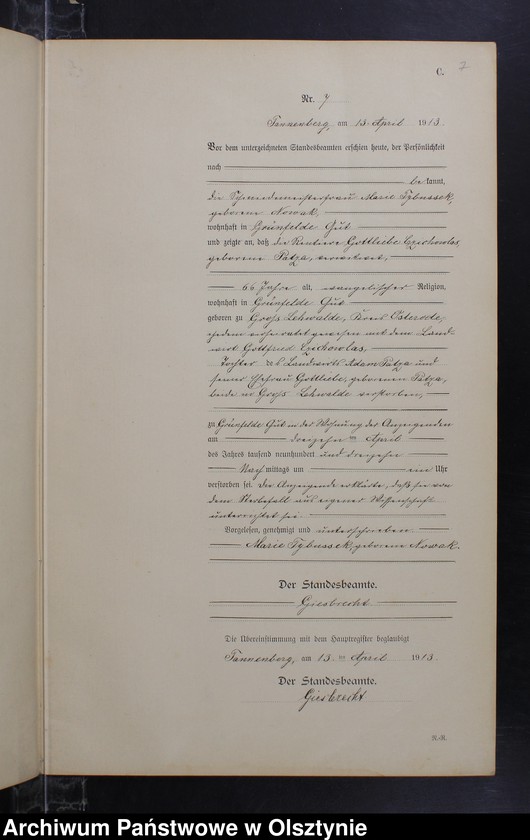 C. 7
Nr. 7
Tannenberg, am 13. April 1913.
Vor dem unterzeichneten Standesbeamten erschien heute, der Persönlichkeit
nach
bekannt,
die Marie Tybussek,
geborene Nowak,
wohnhaft in Grünfelde Gut
und zeigte an, daß die Rentiere Gottliebe Czichowlas,
geborene Patza, verwitwet,
66 Jahre alt, evangelischer Religion,
wohnhaft in Grünfelde Gut
geboren zu Groß Lehwalde, Kreis Osterode,
ehedem verheiratet gewesen mit dem Land-
wirt Gottfried Czichowlas,
Tochter des Landwirts Adam Patza und
seiner Ehefrau Gottliebe, geborenen Patza,
beide in Groß Lehwalde verstorben,
zu Grünfelde Gut in der Wohnung der Anzeigenden
am dreizehnten April
des Jahres tausend neunhundert und dreizehn
Nachmittags um ein Uhr
verstorben sei. Die Anzeigende erklärte, daß sie von
dem Sterbefall aus eigener Wissenschaft
unterrichtet sei.
Vorgelesen, genehmigt und unterschrieben
Marie Tybussek, geborene Nowak.
Der Standesbeamte.
Giesbrecht
Die Übereinstimmung mit dem Hauptregister beglaubigt
Tannenberg, am 13ten April 1913.
Der Standesbeamte.
Giesbrecht
Archiwum Państwowe w Olsztynie